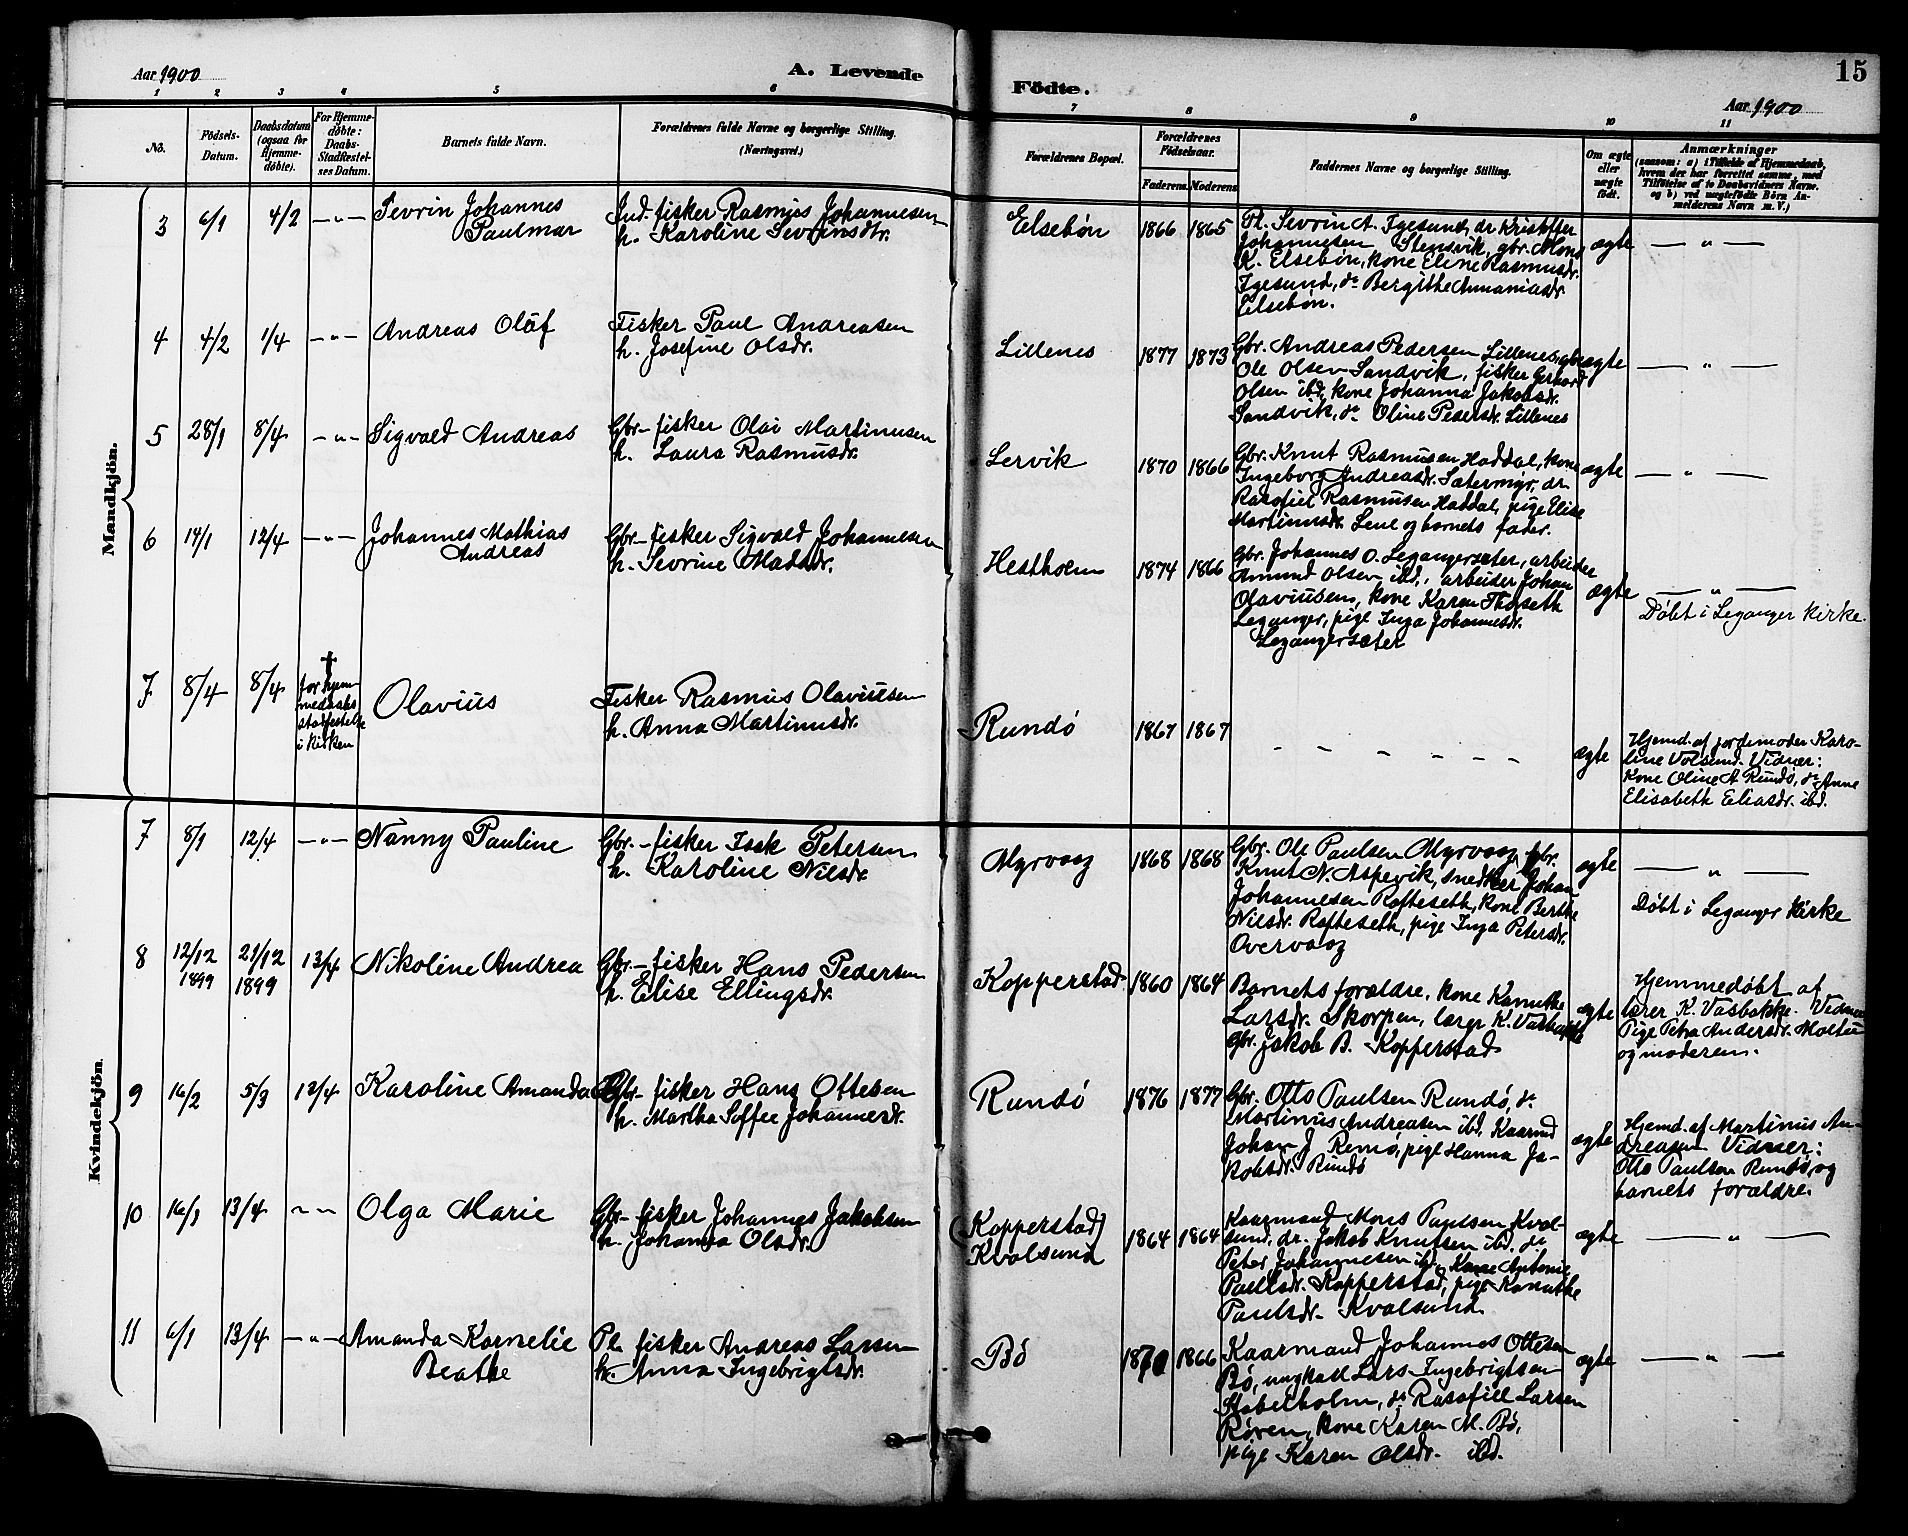 Aar 1900
A. Levende
Födte.
15
Aar 1900
1 2 3 4 5 6 7 8 9 10 11
No.
Födsels-
Datum.
Daabsdatum
(ogsaa for
Hjemme-
döbte).
For Hjemme-
döbte:
Daabs-
Stadfæstel-
ses Datum.
Barnets fulde Navn.
Forældrenes fulde Navne og borgerlige Stilling.
(Næringsvei.)
Forældrenes Bopæl.
Forældrenes
Födselsaar.
Faderens
Moderens
Faddernes Navne og borgerlige Stilling.
Om ægte
eller
uægte
födt.
Anmærkninger
(saasom: a) i Tilfælde af Hjemmedaab,
hvem der har forrettet samme, med
Tilföielse af to Daabsvidners Navne,
og b) ved uægtefödte Börn An-
melderens Navn m. V.)
Mandkjön.
3 6/1 4/2 — " — Sevrin Johannes
Paulmar
Ind. fisker Rasmus Johannesen
h. Karoline Sevrinsdtr.
Elsebøn 1866 1865
Pl. Sevrin A. Igesund, dr Kristoffer
Johannesen Stensvik, gbr. Mons
K. Elsebøn, kone Eline Rasmusdr.
Igesund, do Bergithe Annaniasdr.
Elsebøn.
ægte — " —
4 4/2 1/4 — " — Andreas Olaf
Fisker Paul Andreasen
h. Josefine Olsdr.
Lillenes 1877 1873
Gbr. Andreas Pedersen Lillenes, gbr.
Ole Olsen Sandvik, fisker Gerhard
Olsen ibd, kone Johanna Jakobsdr.
Sandvik, do Oline Pedersdr. Lillenes
ægte — " —
5 28/1 8/4 — " — Sigvald Andreas
Gbr – fisker Olai Martinusen
h. Laura Rasmusdr.
Lervik 1870 1866
Gbr. Knut Rasmusen Haddal, kone
Ingeborg Andreasdr. Sætermyr, dr
Rasofiel Rasmusen Haddal, pige Elise
Martinusdr. Lene og barnets fader.
ægte — " —
6 14/1 12/4 — " — Johannes Mathias
Andreas
Gbr – fisker Sigvald Johannesen
h. Sevrine Madsdr.
Hestholm 1874 1866
Gbr. Johannes O. Legangersæter, arbeider
Amund Olsen ibd., arbeider Johan
Olaviusen, kone Karen Thoseth
Leganger, pige Inga Johannesdr.
Legangersæter
ægte — " —
Døbt i Leganger kirke.
7 8/4 8/4 †
før hjem-
medaabs
stadfestelse
i kirken
Olavius
Fisker Rasmus Olaviusen
h. Anna Martinusdr.
Rundø 1867 1867
– – – – – –
ægte
Hjemd. af jordemoder Karo-
line Volsund. Vidner:
Kone Oline A Rundø, do Anne
Elisabeth Eliasdr. ibd.
Kvindekjön
7 8/1 12/4 — " — Nanny Pauline
Gbr. – fisker Isak Petersen
h. Karoline Nilsdr.
Myrvaag 1868 1868
Gbr. Ole Paulsen Myrvaag, gbr.
Knut N. Aspevik, snedker Johan
Johannesen Rafteseth, kone Berthe
Nilsdr. Rafteseth, pige Inga Petersdr.
Overvaag
ægte — " —
Døbt i Leganger kirke
8 12/12
1899
21/12
1899
13/4 Nikoline Andrea
Gbr – fisker Hans Pedersen
h. Elise Ellingsdr.
Kopperstad 1860 1864
Barnets forældre, kone Kanutke
Larsdr. Skorpen, lærer K. Vasbakke
Gbr. Jakob B. Kopperstad
ægte
Hjemmedøbt af
lærer K. Vasbakke. Vidner
Pige Petra Andersdr. Moltu
og moderen.
9 16/2 5/3 12/4 Karoline Amanda
Gbr – fisker Hans Ottesen
h. Martha Soffie Johannesdr.
Rundø 1876 1877
Gbr. Otto Paulsen Rundø, do
Martinus Andreasen ibd, Kaarmd
Johan J. Remø, pige Hanna Ja-
kobsdr. Rundø
ægte
Hjemd. af Martinus An-
dreasen Vidner:
Otto Paulsen Rundø, og
barnets forældre.
10 16/1 13/4 ~ ~ Olga Marie
Gbr – fisker Johannes Jakobsen
h. Johanna Olsdr.
(Kopperstad)
Kvalsund
1864 1864
Kaarmand Mons Paulsen Kval-
sund, dr. Jakob Knutsen ibd, do
Peter Johannesen ibd, Kone Antonie
Paulsdr. Kopperstad, pige Kanutke
Paulsdr. Kvalsund
ægte — " —
11 6/1 13/4 — " — Amanda Kornelie
Beathe
Pl. fisker Andreas Larsen
h. Anna Ingebrigtsdr.
Bø 1870 1866
Kaarmand Johannes Ottesen
Bø, ungkarl Lars Ingebrigtsen
Stabelholm, do Rasofiel Larsen
Røren, kone Karen M. Bø,
pige Karen Olsdr. ibd.
ægte — " —